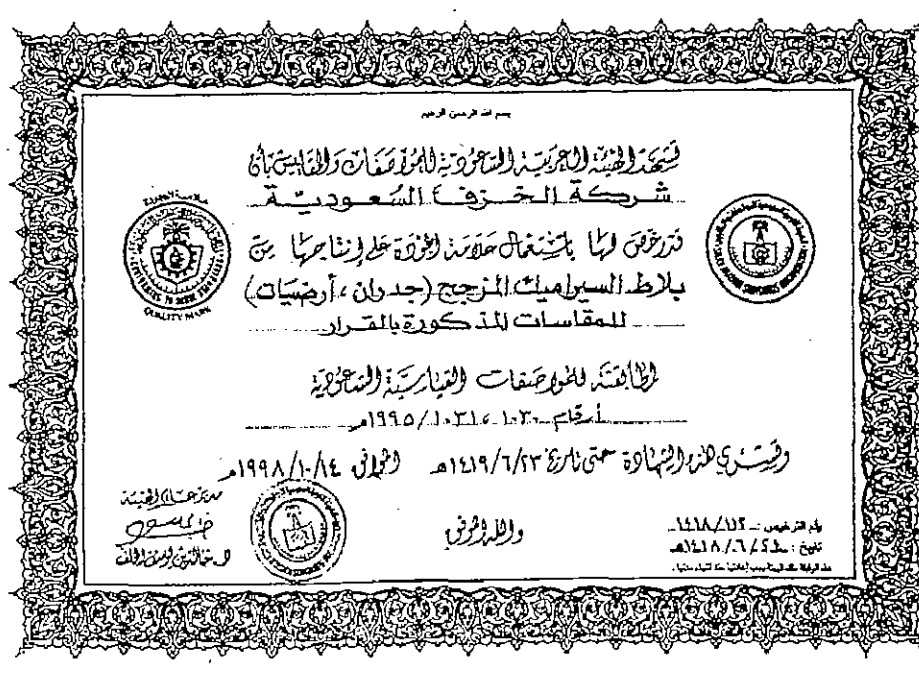 بسم الله الرحمن الرحيم
تشهد الهيئة العربية السعودية للمواصفات والمقاييس بأن
شركة الخزف السعودية
قد رخص لها باستعمال علامة الجودة على إنتاجها من
بلاط السيراميك المزجج (جدران ، أرضيات)
للمقاسات المذكورة بالقرار
لمطابقته للمواصفات القياسية السعودية
أرقام ١٠٣٠ ، ١٠٣١ / ١٩٩٥م
وتسري هذه الشهادة حتى تاريخ ١٤١٩/٦/٢٣هـ الموافق ١٩٩٨/١٠/١٤م
علامة الجودة
QUALITY MARK
والله الموفق
مدير عام الهيئة
د. خالد بن يوسف الخلف
رقم الترخيص : ١٤١٨/١١٢
تاريخ :